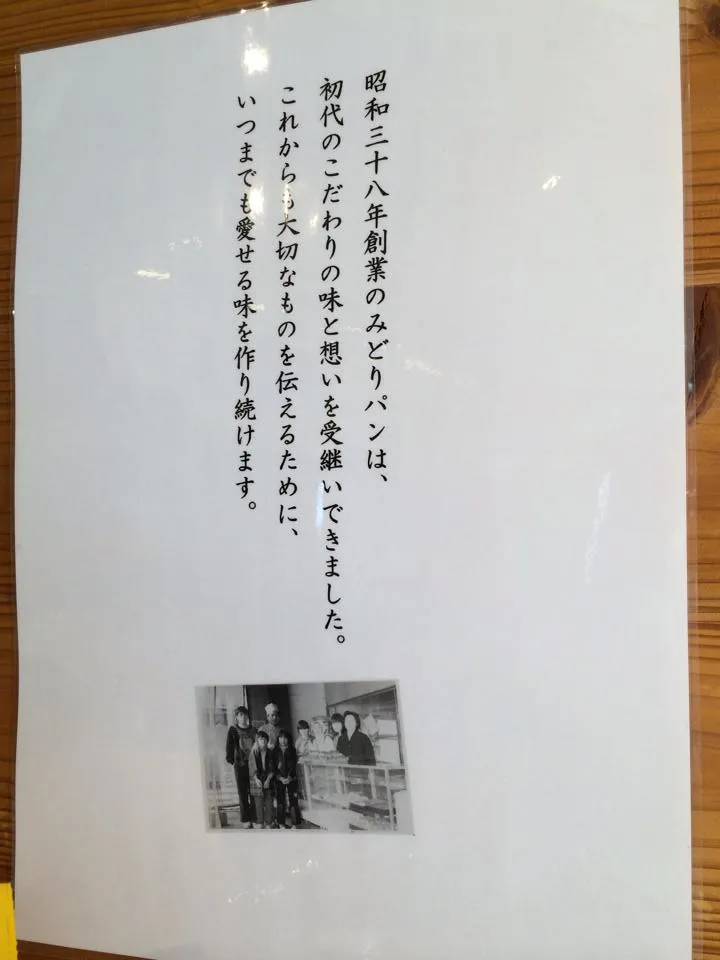 昭和三十八年創業のみどりパンは、
初代のこだわりの味と想いを受継いできました。
これからも大切なものを伝えるために、
いつまでも愛せる味を作り続けます。